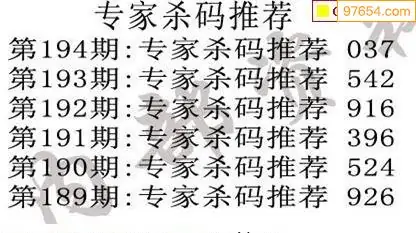 专家杀码推荐
97654.com
第194期:专家杀码推荐 037
第193期:专家杀码推荐 542
第192期:专家杀码推荐 916
第191期:专家杀码推荐 396
第190期:专家杀码推荐 524
第189期:专家杀码推荐 926